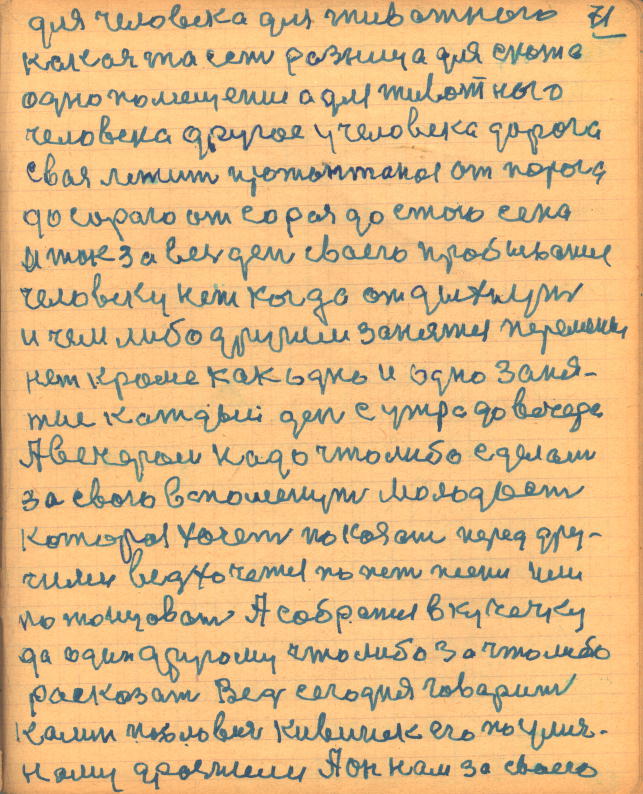 для человека для животного 71
какая та сеть разница для скота
одно помещение а для животного
человека другое у человека дорога
своя лежит протоптаноя от порога
до сараго от сорая до стого сена
и так за весь ден своего пробывание
человеку нет когда отдыхнут
и чем либо другим занятся перемены
нет кроме как одно и одно заня-
тие каждый ден с утра до вечера
А вечером надо что либо сделат
за свою вспоменут молодост
которая хочет показат перед дру-
гими вед хочетя попет песни или
потонцоват А собратя в кучечку
да один другому что либо за что либо
расказат Вед сегодня говарит
Калит Кивинек его по улич-
ному дразнили А он нам за своего